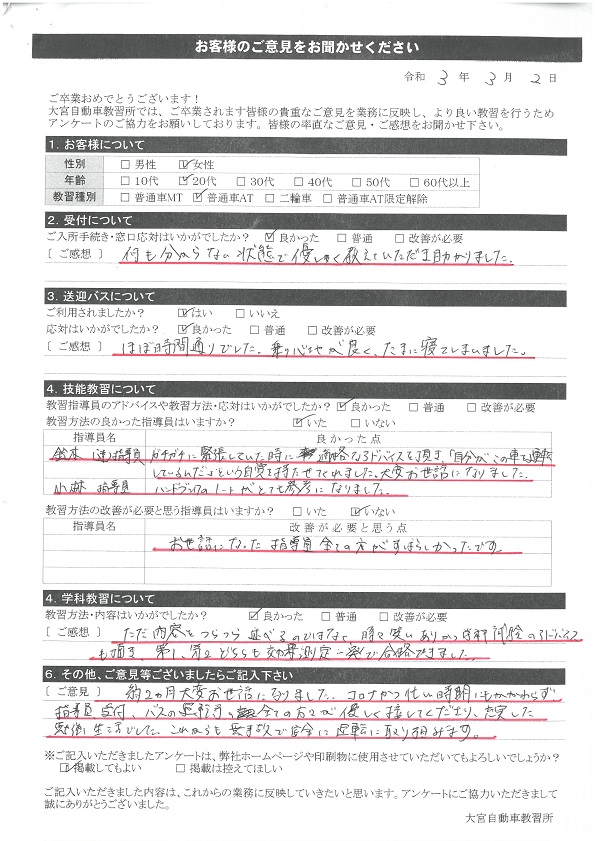 お客様のご意見をお聞かせください
令和 3 年 3 月 2 日
ご卒業おめでとうございます！
大宮自動車教習所では、ご卒業されます皆様の貴重なご意見を業務に反映し、より良い教習を行うため
アンケートのご協力をお願いしております。皆様の率直なご意見・ご感想をお聞かせ下さい。
1. お客様について
性別 □ 男性 ☑ 女性
年齢 □ 10代 ☑ 20代 □ 30代 □ 40代 □ 50代 □ 60代以上
教習種別 □ 普通車MT ☑ 普通車AT □ 二輪車 □ 普通車AT限定解除
2. 受付について
ご入所手続き・窓口応対はいかがでしたか？ ☑ 良かった □ 普通 □ 改善が必要
〔 ご感想 〕 何も分からない状態で優しく教えていただき助かりました。
3. 送迎バスについて
ご利用されましたか？ ☑ はい □ いいえ
応対はいかがでしたか？ ☑ 良かった □ 普通 □ 改善が必要
〔 ご感想 〕 ほぼ時間通りでした。乗り心地が良く、たまに寝てしまいました。
4. 技能教習について
教習指導員のアドバイスや教習方法・応対はいかがでしたか？ ☑ 良かった □ 普通 □ 改善が必要
教習方法の良かった指導員はいますか？ ☑ いた □ いない
指導員名 良かった点
鈴木 指導員 ガチガチに緊張していた時に 適格なアドバイスを頂き、「自分がこの車を運転
しているんだ」という自覚を持たせてくれました。大変お世話になりました。
小林 指導員 ハンドブックのノートがとても参考になりました。
教習方法の改善が必要と思う指導員はいますか？ □ いた ☑ いない
指導員名 改善が必要と思う点
お世話になった指導員全ての方がすばらしかったです。
4. 学科教習について
教習方法・内容はいかがでしたか？ ☑ 良かった □ 普通 □ 改善が必要
〔 ご感想 〕 ただ内容をつらつら述べるのではなく、時々笑いありかつ 試験のアドバイス
も頂き、第1、第2どちらも効果測定一発で合格できました。
6. その他、ご意見等ございましたらご記入下さい
〔 ご意見 〕 約2ヵ月大変お世話になりました。コロナかつ忙しい時期にもかかわらず
指導員、受付、バスの 全ての方々が優しく接してくださり、充実した
生活でした。これからも安全に運転に取り組みます。
※ご記入いただきましたアンケートは、弊社ホームページや印刷物に使用させていただいてもよろしいでしょうか？
☑ 掲載してもよい □ 掲載は控えてほしい
ご記入いただきました内容は、これからの業務に反映していきたいと思います。アンケートにご協力いただきまして
誠にありがとうございました。
大宮自動車教習所